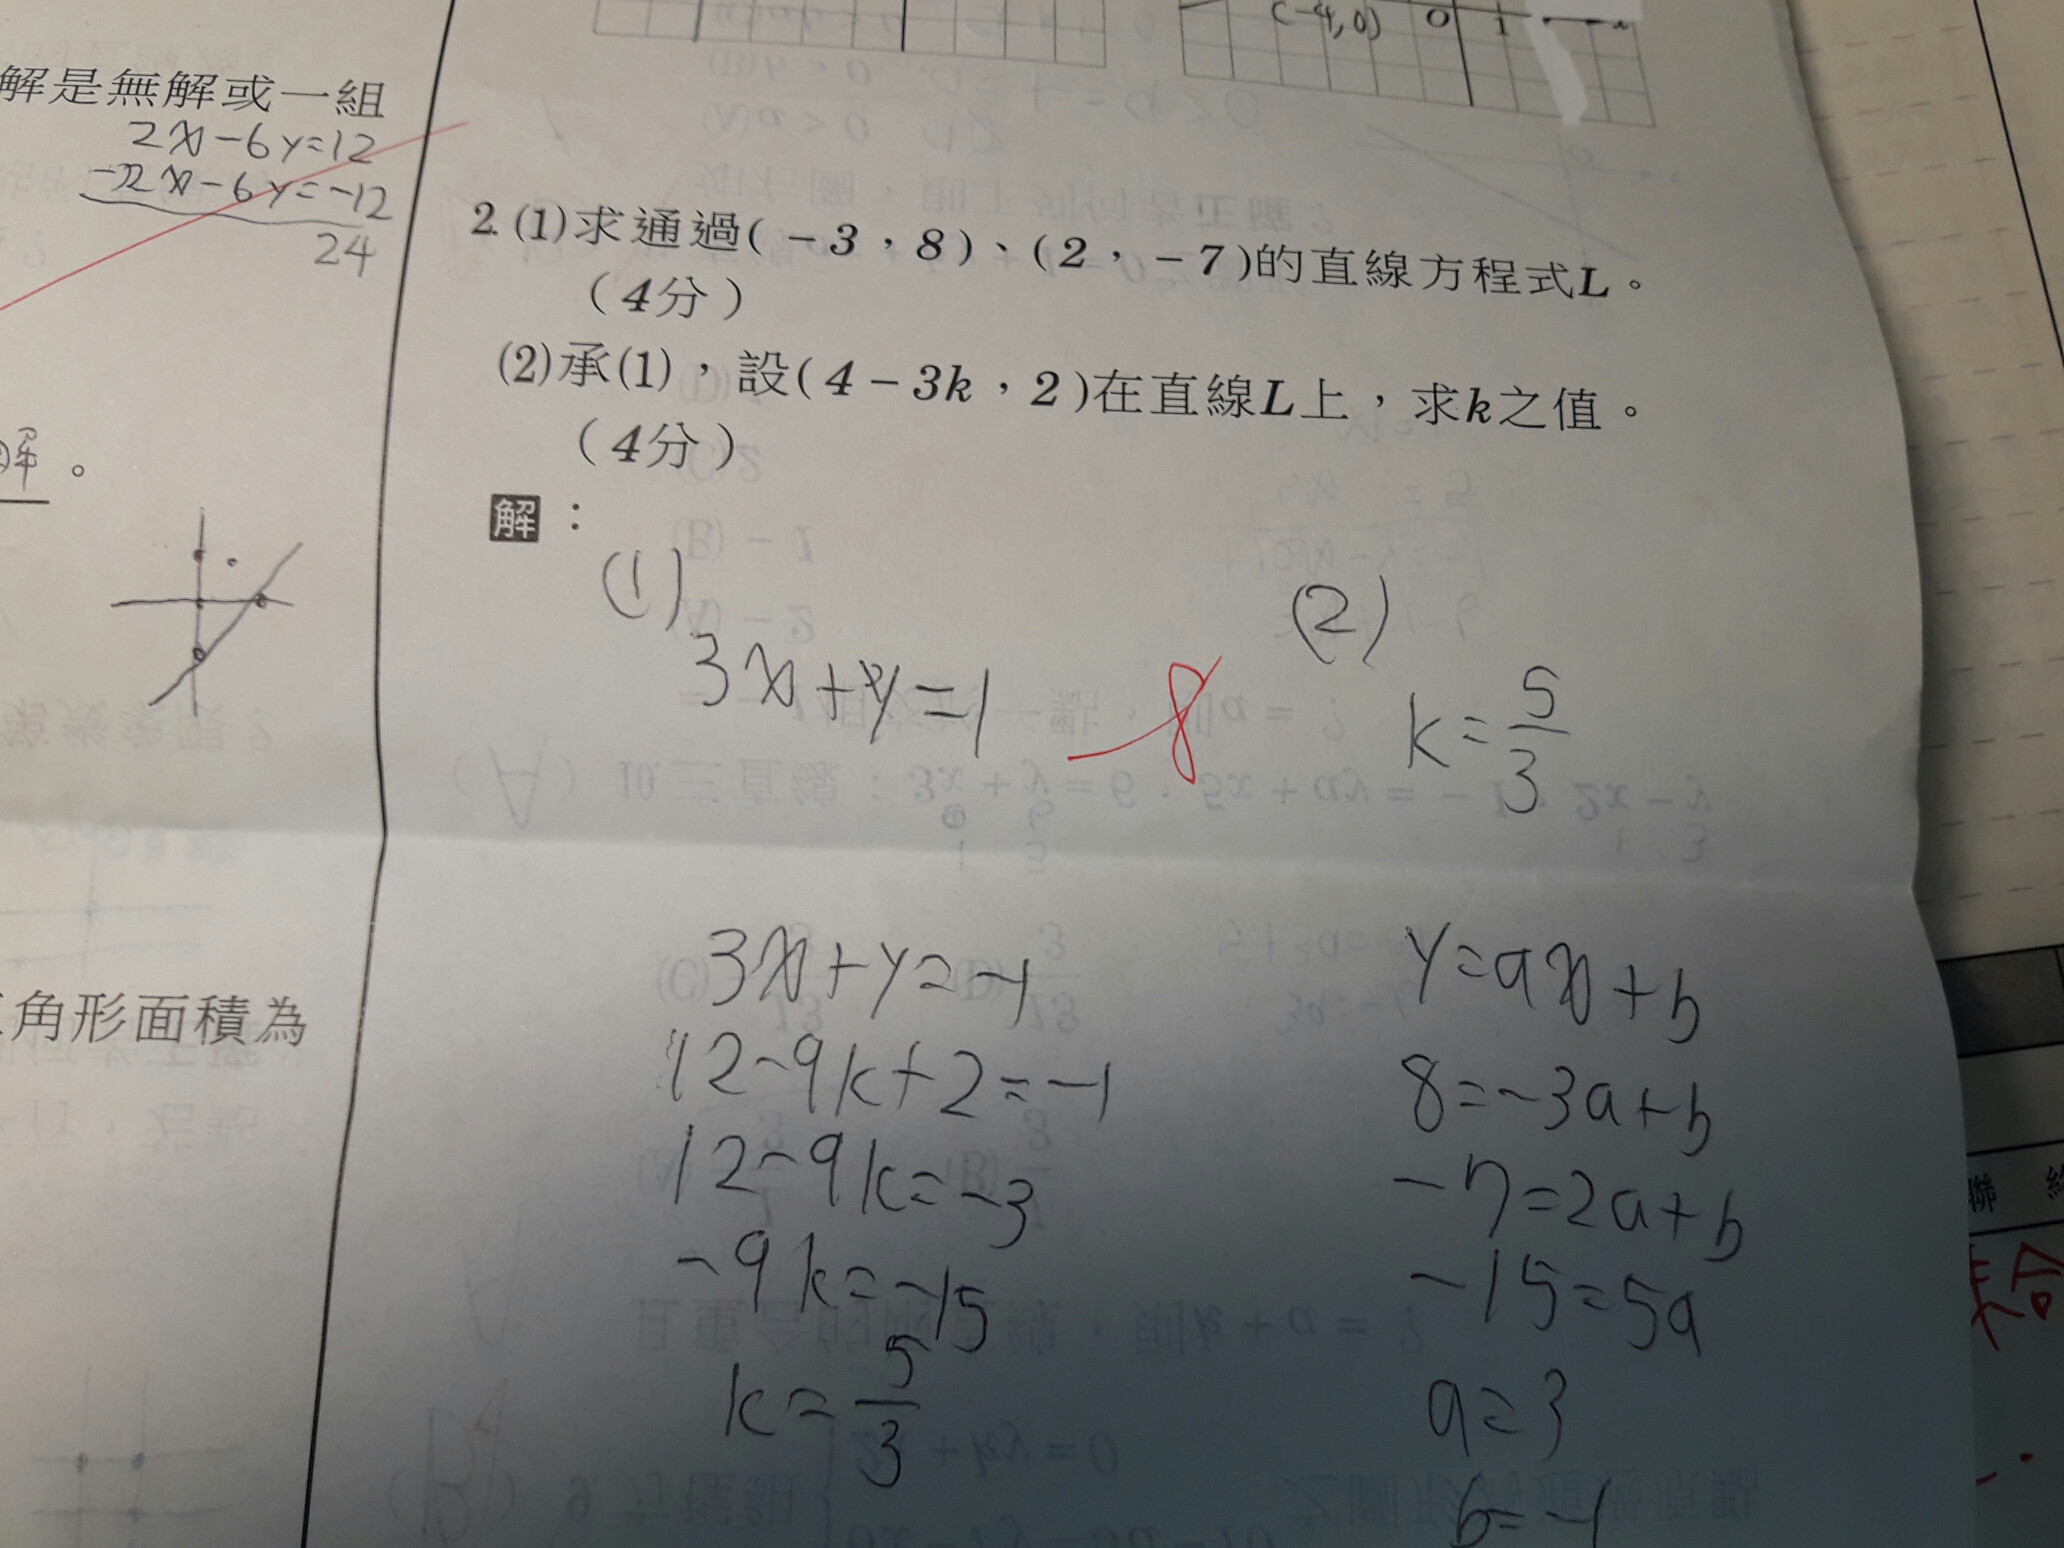 (-4,0) 0 1
解是無解或一組
2x-6y=12
-2x-6y=-12
24
2.(1)求通過(-3,8)、(2,-7)的直線方程式L。
(4分)
(2)承(1),設(4-3k,2)在直線L上,求k之值。
(4分)
解。
解:
(1)
3x+y=1
-8
(2)
k=5/3
角形面積為
3x+y=-1
12-9k+2=-1
12-9k=-3
-9k=-15
k=5/3
y=ax+b
8=-3a+b
-7=2a+b
-15=5a
a=3
b=-1
聯
合